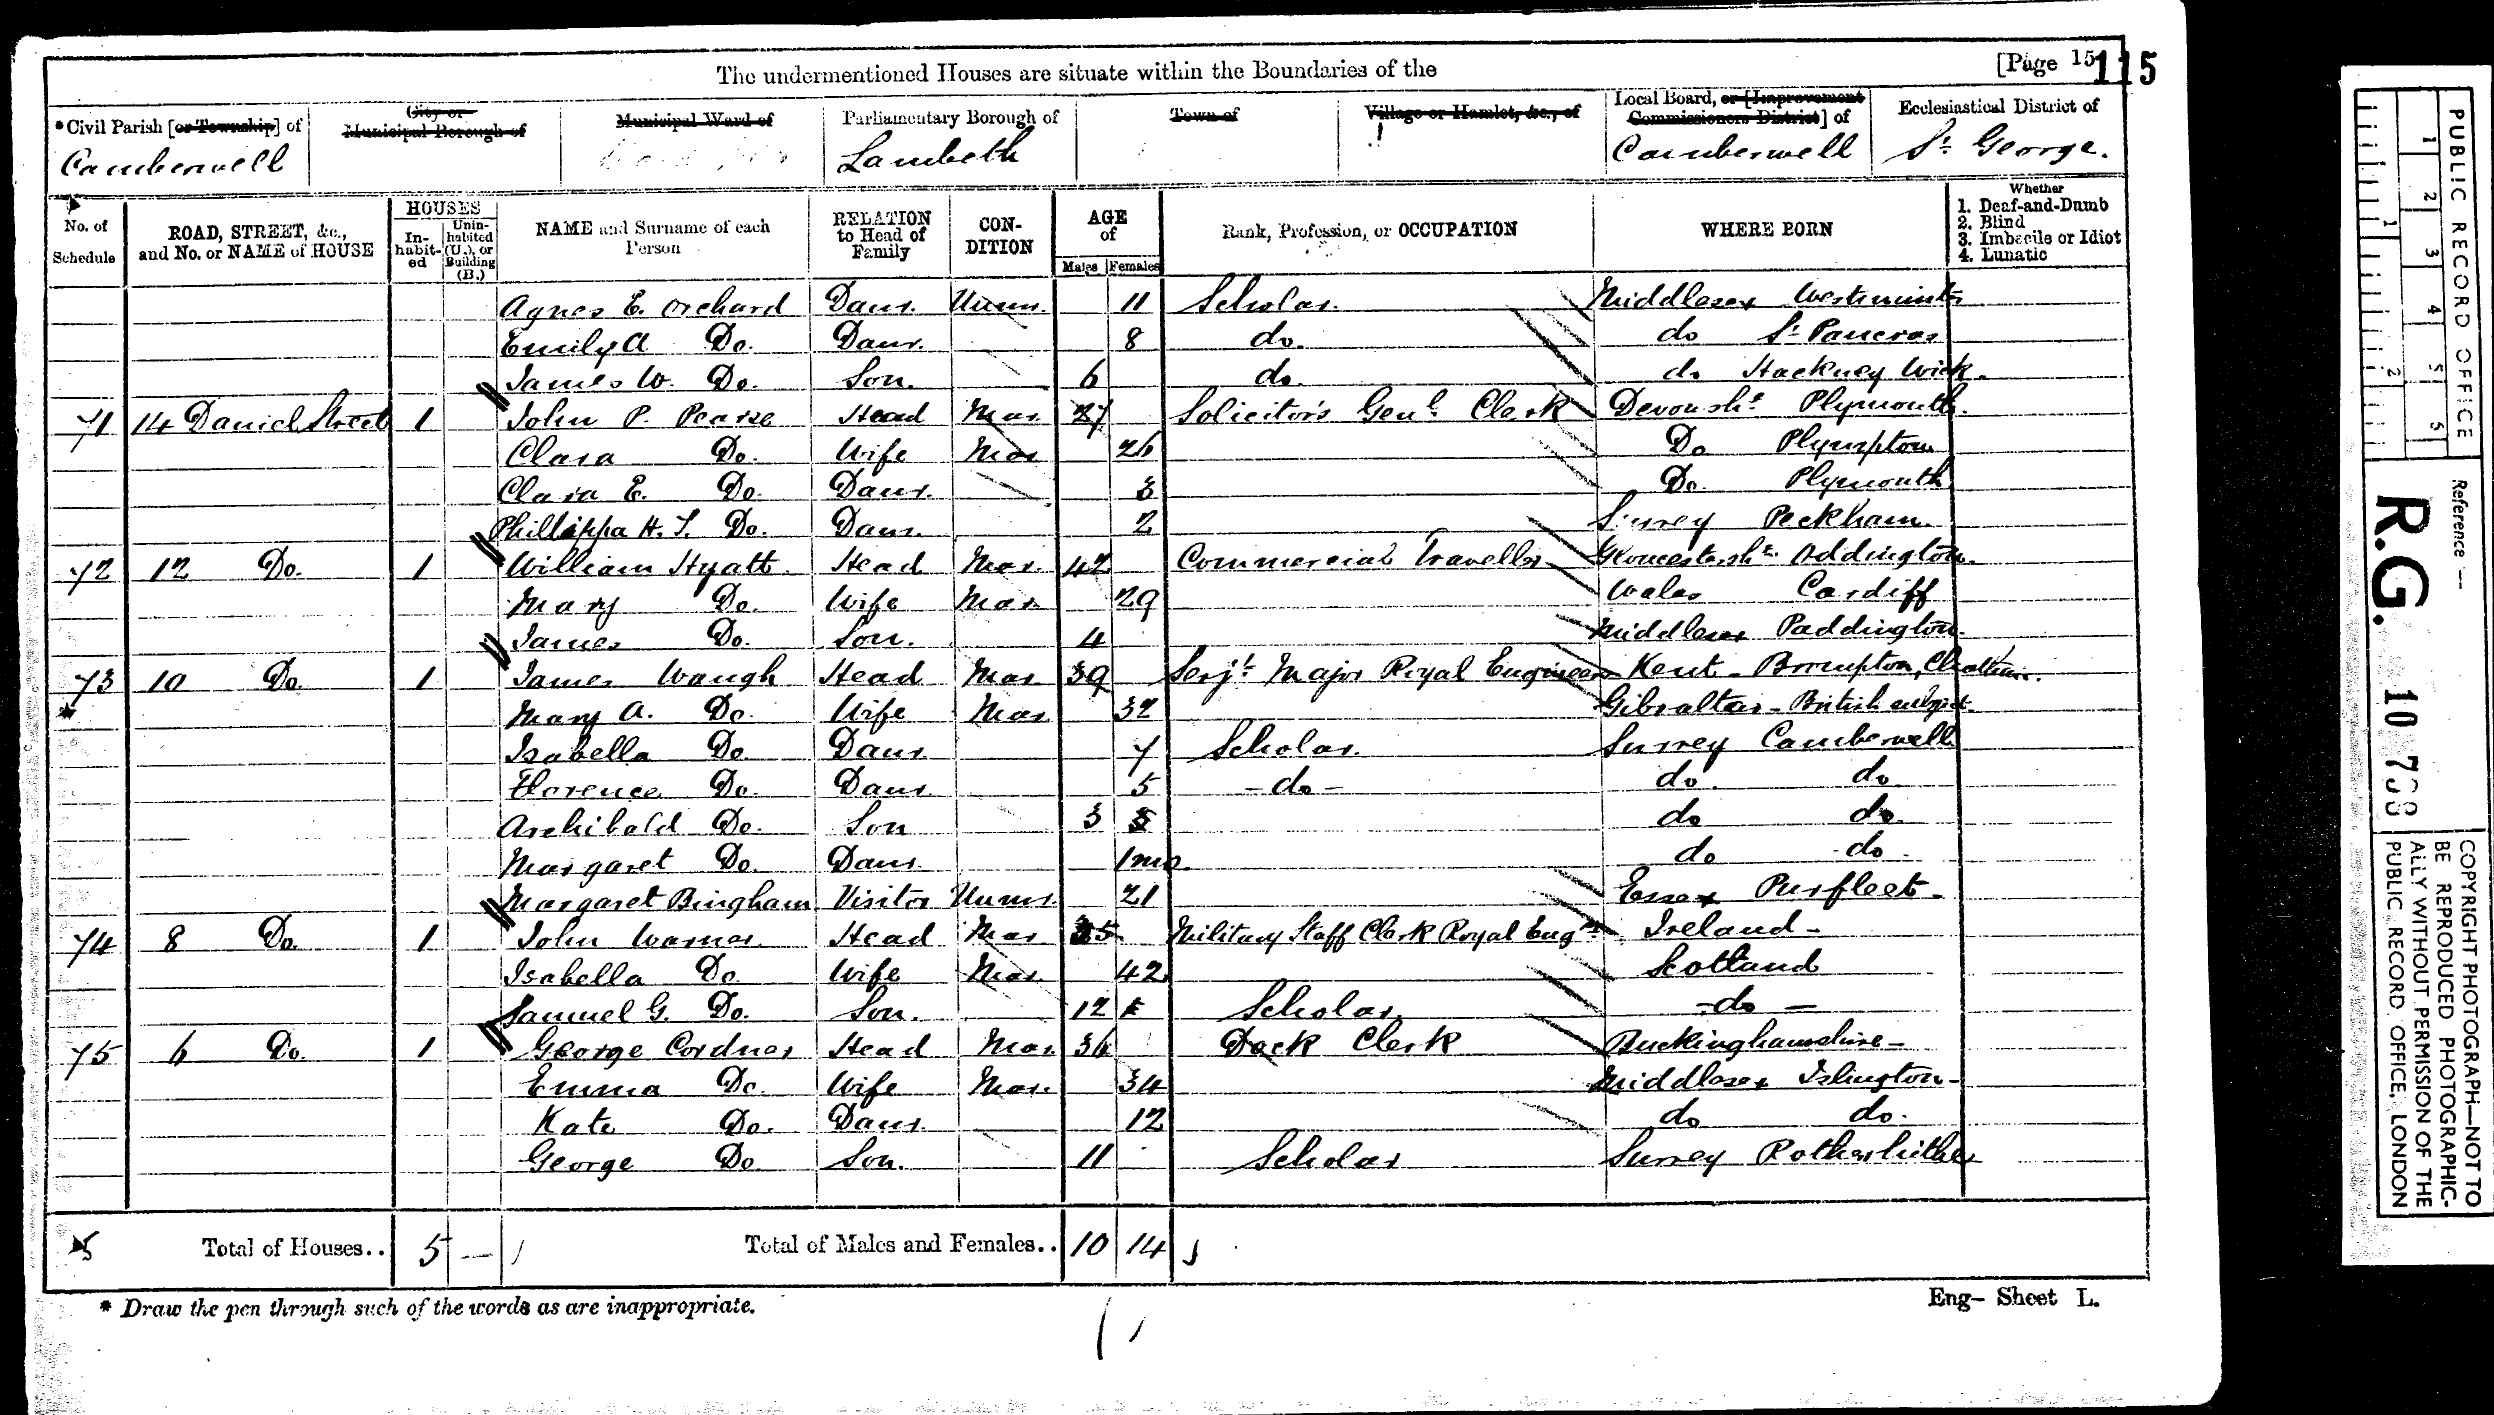 The undermentioned Houses are situate within the Boundaries of the [Page 15 115
*Civil Parish [or Township] of City or Municipal Borough of Municipal Ward of Parliamentary Borough of Town of Village or Hamlet, &c., of Local Board, or [Improvement Commissioners District] of Ecclesiastical District of
Camberwell Lambeth Camberwell St. George.
No. of Schedule ROAD, STREET, &c., and No. or NAME of HOUSE HOUSES Inhabited Uninhabited (U.), or Building (B.) NAME and Surname of each Person RELATION to Head of Family CONDITION AGE of Males Females Rank, Profession, or OCCUPATION WHERE BORN Whether 1. Deaf-and-Dumb 2. Blind 3. Imbecile or Idiot 4. Lunatic
Agnes E. Orchard Daur. Unmr. 11 Scholar. Middlesex Westminster
Emily A Do. Daur. 8 do. do St Pancras
James W. Do. Son. 6 do. do Hackney Wick.
71 14 Daniel Street 1 John P. Pearse Head Mar. 27 Solicitor's Genl. Clerk Devonshr. Plymouth.
Clara Do. Wife Mar 26 Do Plympton
Clara E. Do. Daur. 3 Do. Plymouth
Phillippa H. Do. Daur. 2 Surrey Peckham.
72 12 Do. 1 William Hyatt. Head Mar. 42 Commercial Traveller Gloucestershr. Addington.
Mary Do. Wife Mar. 29 Wales Cardiff
James Do. Son. 4 Middlesex Paddington.
73 10 Do. 1 James Waugh Head Mar 39 Serjt. Major Royal Engineers Kent - Brompton, Chatham.
Mary A. Do. Wife Mar. 32 Gibraltar - British subject.
Isabella Do. Daur. 7 Scholar. Surrey Camberwell
Florence Do. Daur. 5 - do - do. do
Archibald Do. Son 3 do do.
Margaret Do. Daur. 1 mo. do do.
Margaret Bingham Visitor Unmr. 21 Essex Purfleet -
74 8 Do. 1 John Warner Head Mar 35 Military Staff Clerk Royal Engrs. Ireland -
Isabella Do. Wife Mar. 42 Scotland
Samuel G. Do. Son. 12 Scholar. - do -
75 6 Do. 1 George Cordner Head Mar. 36 Dock Clerk Buckinghamshire -
Emma Do. Wife Mar. 34 Middlesex Islington -
Kate Do. Daur. 12 do do.
George Do. Son. 11 Scholar Surrey Rotherhithe
5 Total of Houses.. 5 — Total of Males and Females.. 10 14
* Draw the pen through such of the words as are inappropriate. Eng- Sheet L.
PUBLIC RECORD OFFICE
1 2 3 4 5
1 2
Reference :-
R.G. 10
COPYRIGHT PHOTOGRAPH—NOT TO
BE REPRODUCED PHOTOGRAPHIC-
ALLY WITHOUT PERMISSION OF THE
PUBLIC RECORD OFFICE, LONDON